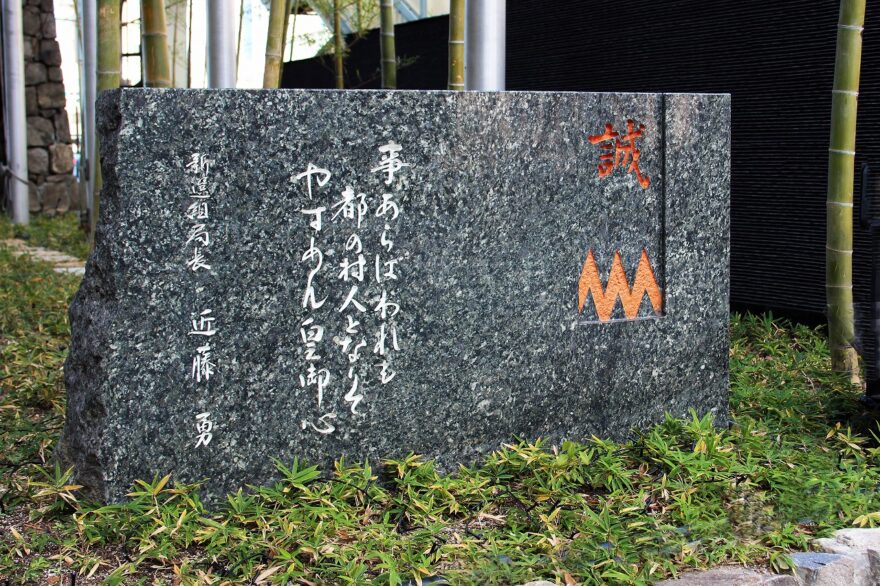 誠
事あらばわれも
都の村人となりて
やすめん皇御心
新選組局長 近藤 勇